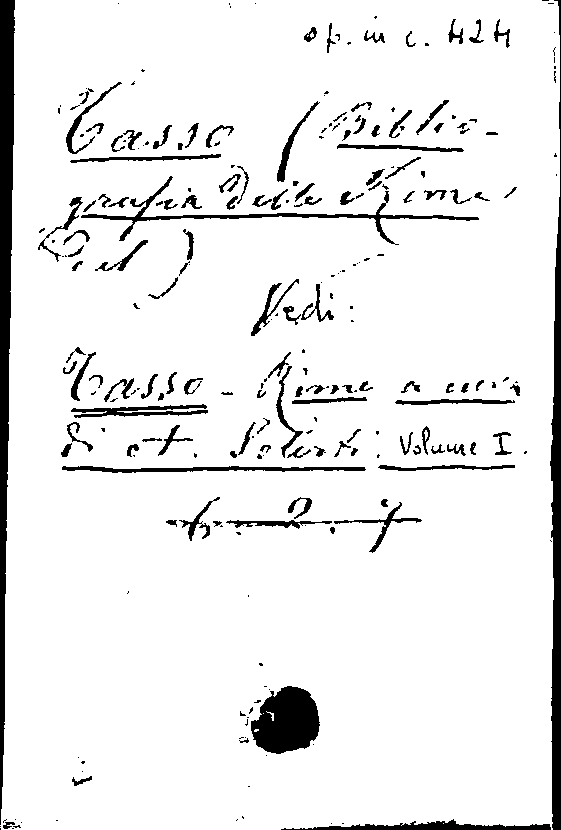 op. in c. 424
Tasso (Biblio-
grafia delle Rime
del)
Vedi:
Tasso - Rime a cura
di A. Solerti. Volume I.
6. 2. 7